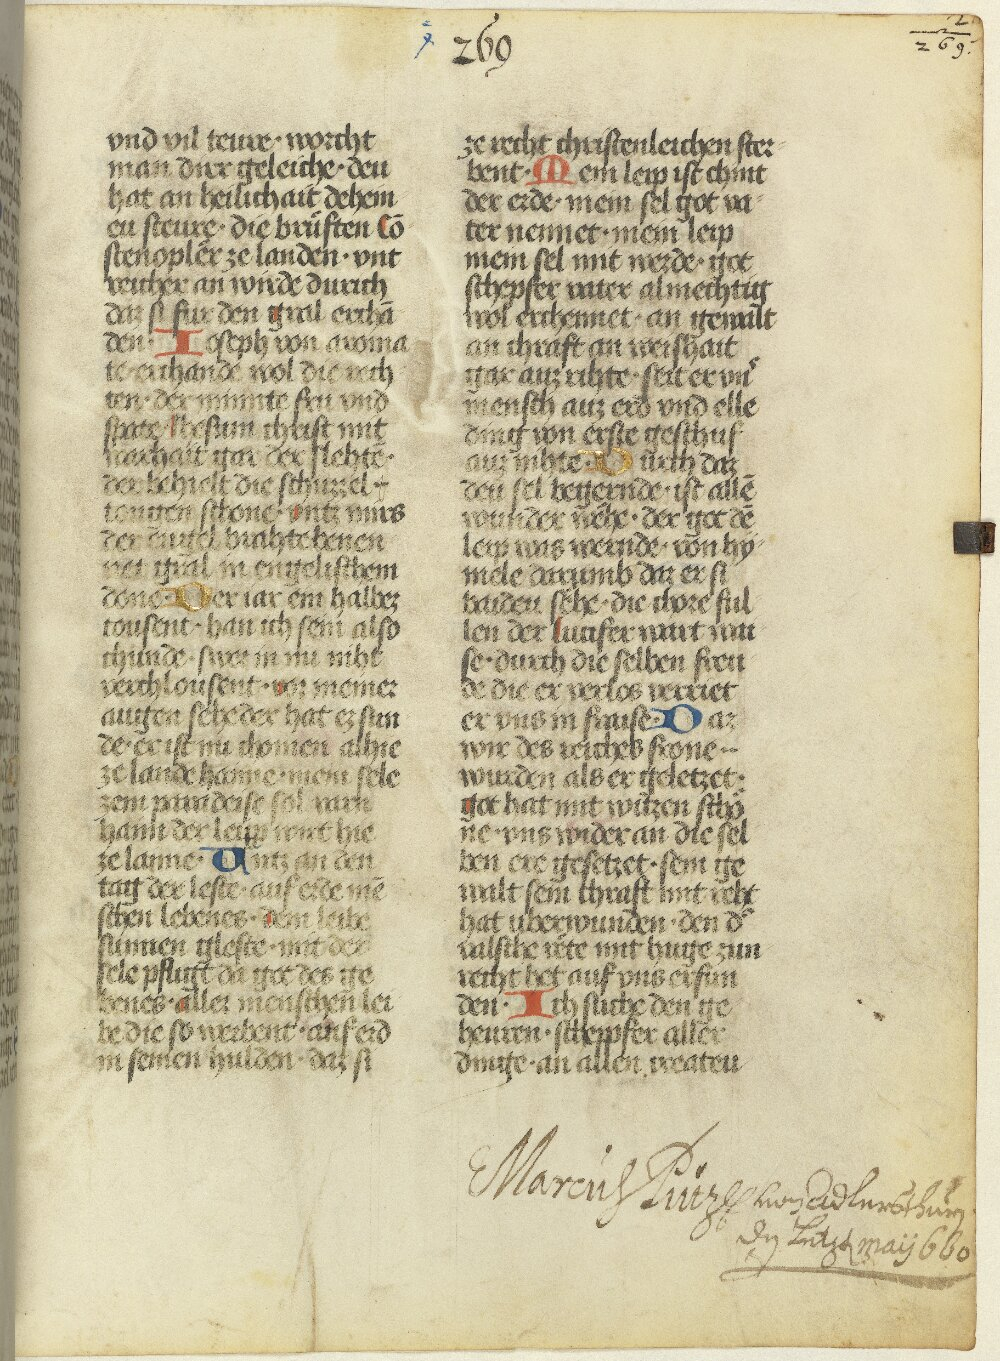 269
2
269.
vnd vil teure · worcht
man dirr geleiche · deu
hat an heilichait dehein
eu steure · die brüsten Cō
stenopler ze landen · vnt
reicher an wirde durich
daz si fur den gral erchā
den · Ioseph von aroma
te · erchande wol die rech
ten · der minnte fru vnd
spate · Ihesum christ mit
warhait gar der slehte ·
der behielt die schuzzel
tougen schone · vntz mirs
der engel brahte
gral in engelischem
done · Der iar ein halbez
tousent · han ich sein also
chunde · swer in nu niht
verchlousent · vor meiner
augen sehe der hat ez sun
de · er ist nu chomen alhie
ze lande hanne · mein sele
zem paradeise sol varn
hann der leip wirt hie
ze lanne · Untz an den
tag der leste · auf erde mē
schen lebenes · dem leibe
sunnen gleste · mit der
sele pfligt da got des ge
benes · aller menschen lei
be die so werbent · auf erd
in seinen hulden · daz si
ze recht christenleichen ster
bent · Mein leip ist chint
der erde · mein sel got va
ter nennet · mein leip
mein sel mit werde · got
schepfer vater almechtig
wol erchennet · an gewalt
an chraft an weishait
gar auz rihte · seit er vn
mensch auz erd vnd elle
ding von erste geschuf
auz nihte · Durch daz
deu sel begernde · ist allē
wunder nehe · der got dē
leip was wernde · von hy
mele darumb daz er si
baideu sehe · die chore ful
len der Lucifer wart wai
se · durch die selben freu
de die er verlos verriet
er vns in fraise · Daz
wir des reiches krone
wurden als er geletzet ·
got hat mit witzen schō
ne · vns wider an die sel
ben ere gesetzet · sein ge
walt sein chraft mit reht
hat uberwunden · den d
valsche rete mit huge zun
recht het auf vns erfun
den · Ich suche den ge
heuren · schepfer aller
dinge · an allen createu
Marcus Pütz von Adlersthurn
den maij 660